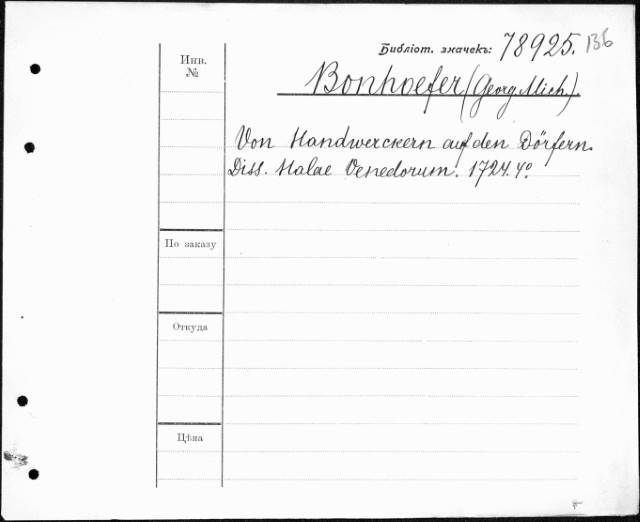 Библіот. значекъ: 78925. 136
Инв.
№
Bonhoefer (Georg. Mich.).
Von Handwerckern auf den Dörfern.
Diss. Halae Venedorum. 1724. 4°.
По заказу
Откуда
Цѣна